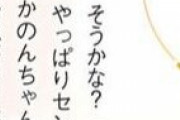 そうかな?
やっぱりセン
かのんちゃん